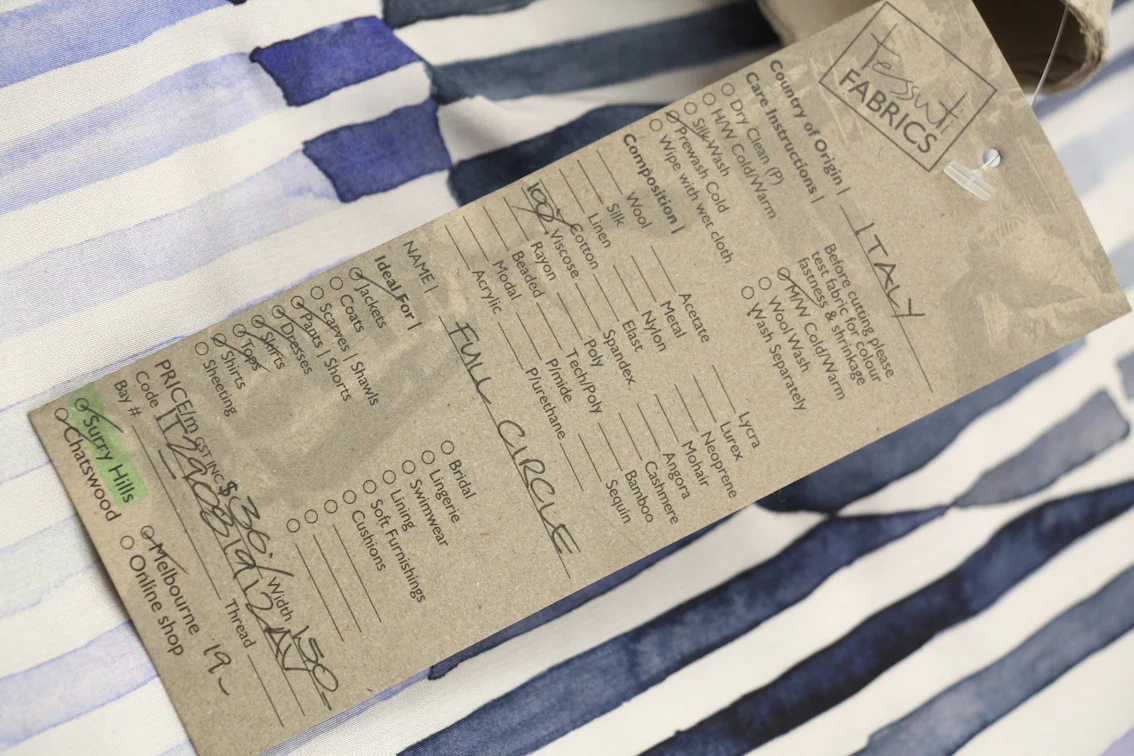 tessuti
FABRICS
Country of Origin | ITALY
Care Instructions |
Dry Clean (P)
H/W Cold/Warm
Silk Wash
Prewash Cold
Wipe with wet cloth
Before cutting please
test fabric for colour
fastness & shrinkage
M/W Cold/Warm
Wool Wash
Wash Separately
Composition |
Wool
Silk
Linen
100% Cotton
Viscose
Rayon
Beaded
Modal
Acrylic
Acetate
Metal
Nylon
Elast
Spandex
Poly
Tech/Poly
P/mide
P/urethane
Lycra
Lurex
Neoprene
Mohair
Angora
Cashmere
Bamboo
Sequin
NAME | FULL CIRCLE
Ideal For |
Jackets
Coats
Scarves | Shawls
Pants | Shorts
Dresses
Skirts
Tops
Shirts
Sheeting
Bridal
Lingerie
Swimwear
Lining
Soft Furnishings
Cushions
PRICE/m GST INC $30./ Width 150
Code
Bay #
Thread
Surry Hills
Chatswood
Melbourne 19-
Online shop